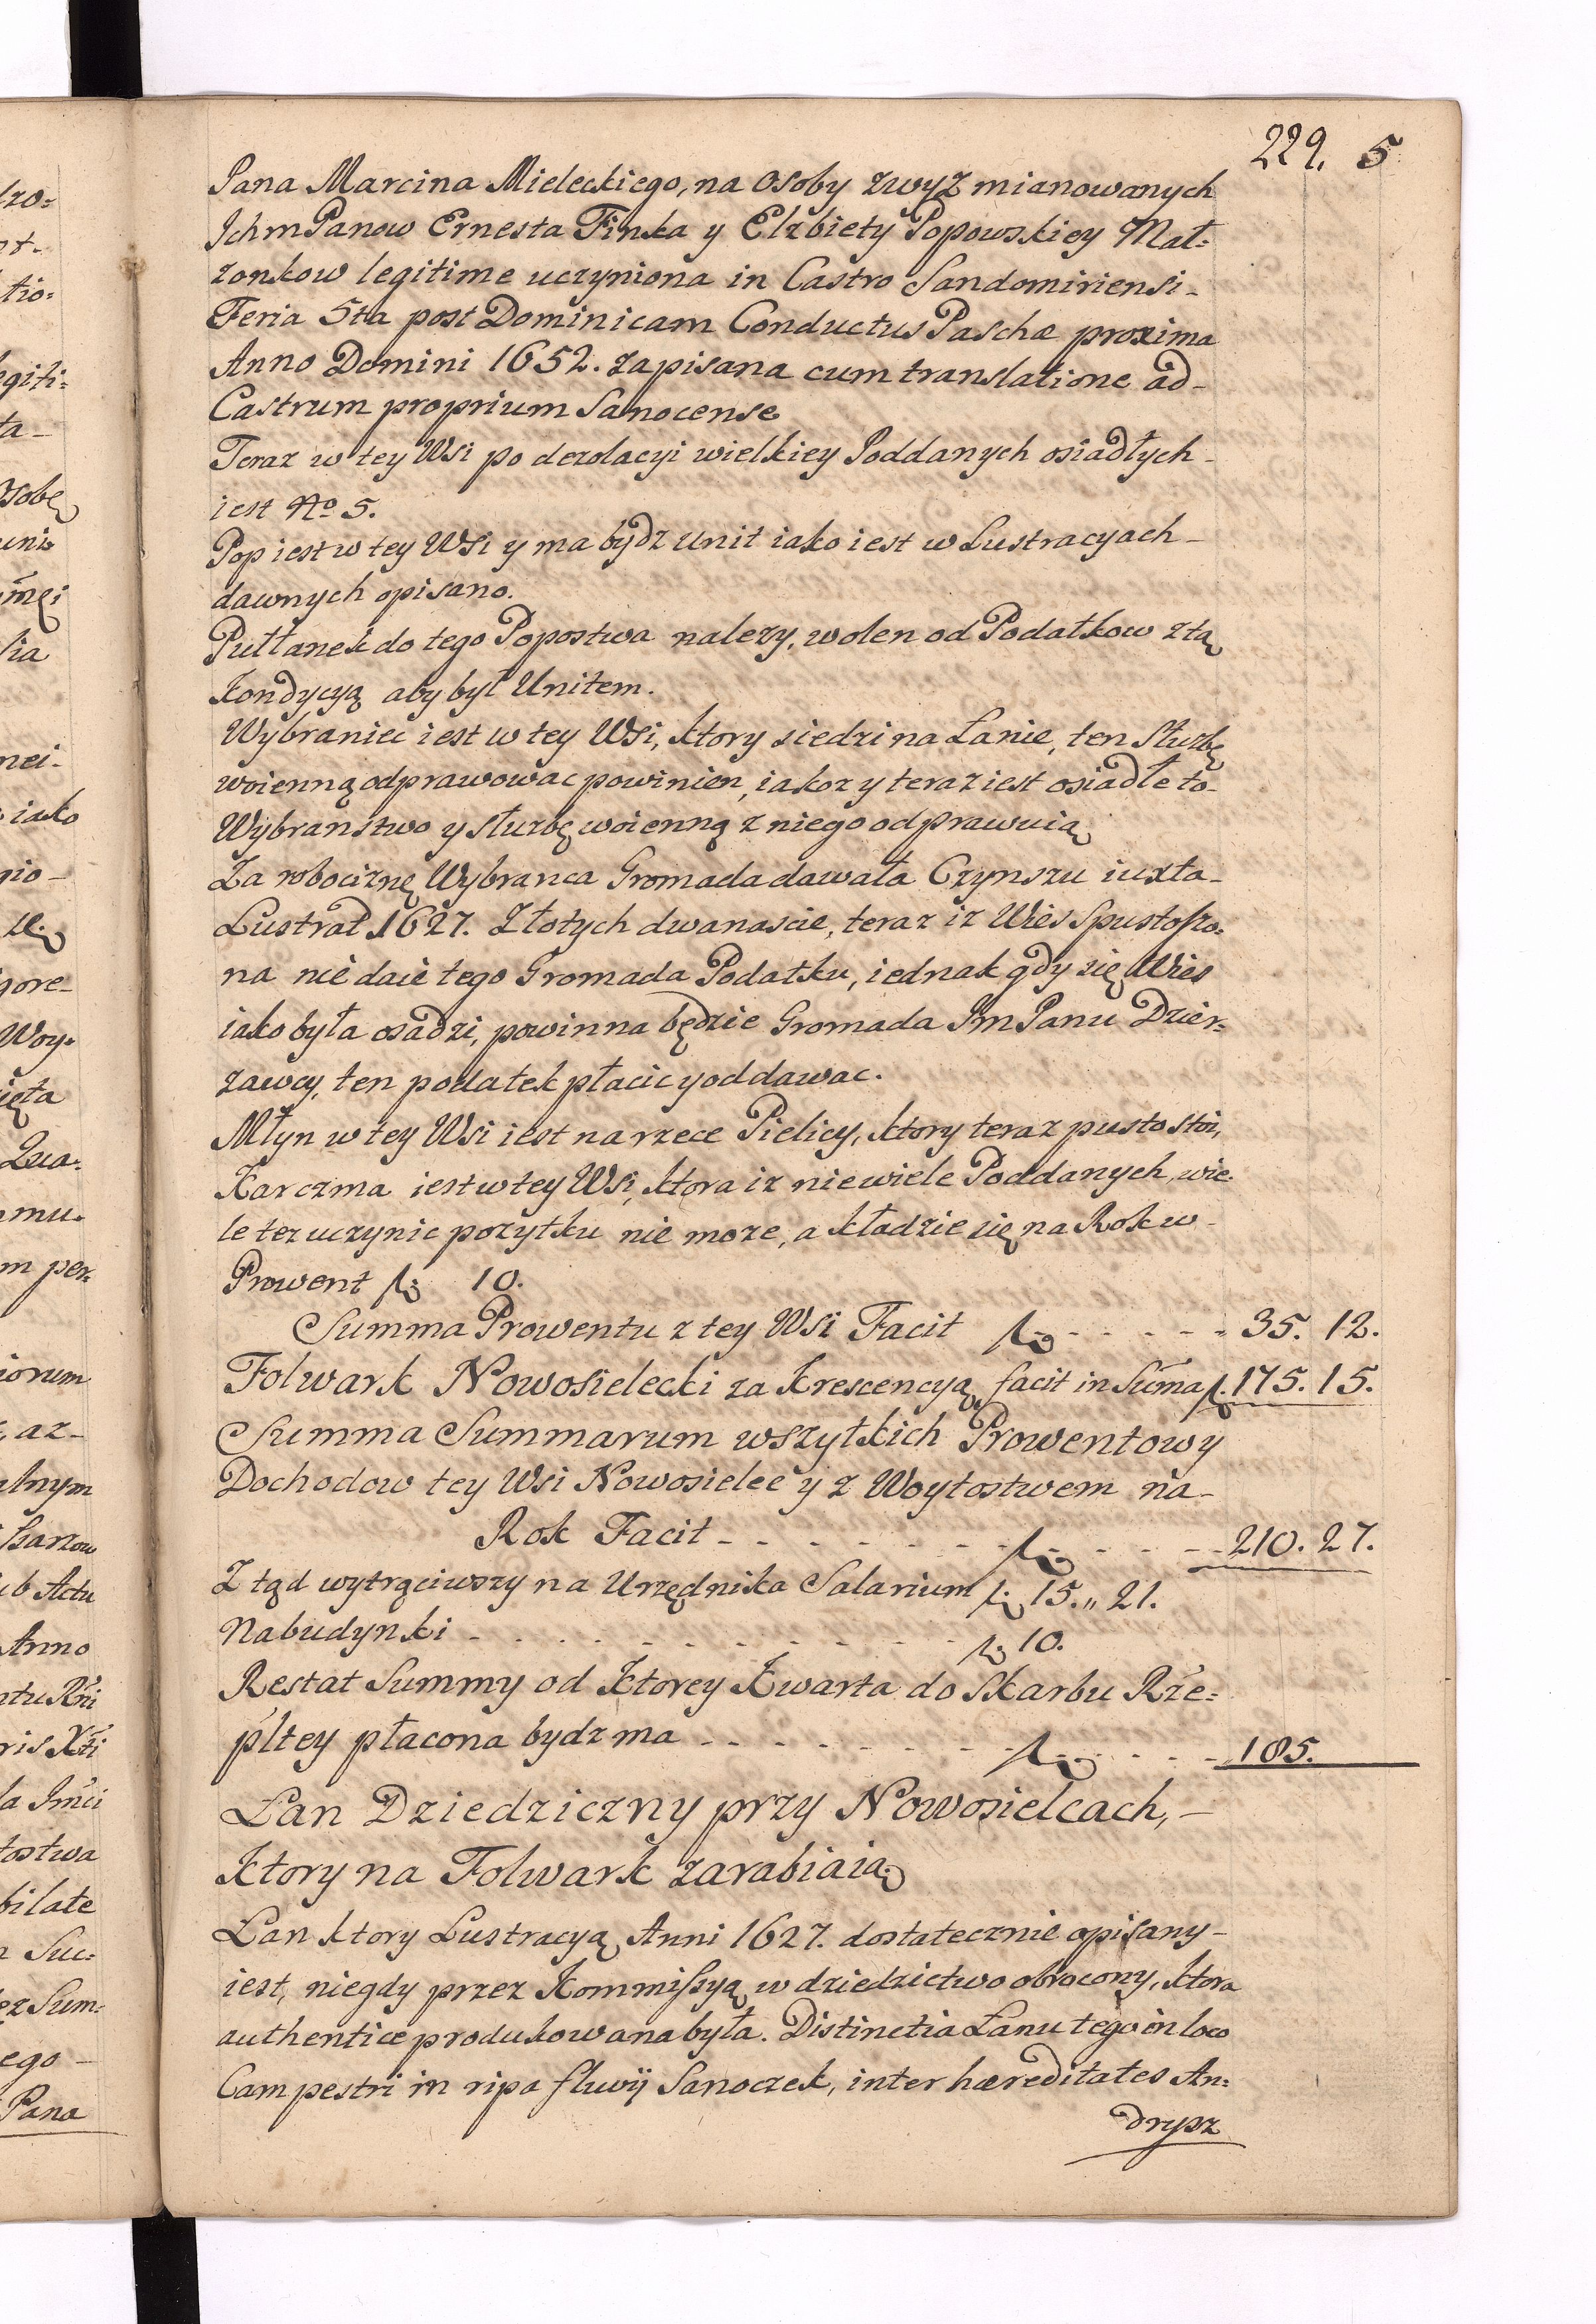 229. 5
Pana Marcina Mieleckiego, na Osoby zwyż mianowanych
Ichm Panow Ernesta Finka y Elzbiety Popowskiey Mał=
zonkow legitime uczyniona in Castro Sandomiriensi -
Feria 5ta post Dominicam Conductus Paschæ proxima
Anno Domini 1652. zapisana cum translatione ad -
Castrum proprium Sanocense
Teraz w tey Wsi po dezolacyi wielkiey Poddanych osiadłych -
iest No 5.
Pop iest w tey Wsi y ma bydz Unit iako iest w Lustracyach -
dawnych opisano.
Pułłanek do tego Popostwa nalezy, wolen od Podatkow z tą
Kondycyą aby był Unitem.
Wybraniec iest w tey Wsi, ktory siedzi na Łanie, ten Słuzbę
woienną odprawowac powinien, iakoz y teraz iest osiadłe to -
Wybranstwo y słuzbę woienną z niego odprawuią
Za robociznę Wybranca Gromada dawała Czynszu iuxta -
Lustrat 1627. Złotych dwanascie, teraz iz Wies Spustoszo=
na nie daie tego Gromada Podatku, iednak gdy się Wies
iako była osadzi, powinna będzie Gromada Jm Panu Dzier=
zawcy, ten podatek płacic y oddawac.
Młyn w tey Wsi iest na rzece Pielicy, ktory teraz pusto stoi,
Karczma iest w tey Wsi, ktora iz niewiele Poddanych, wie=
le tez uczynic pozytku nie moze, a kładzie się na Rok w -
Prowent fl: 10.
Summa Prowentu z tey Wsi Facit fl - - - - - - 35. 12.
Folwark Nowosielecki za Krescencyą facit in Suma fl. 175. 15.
Summa Summarum wszytkich Prowentow y
Dochodow tey Wsi Nowosielec y z Woytostwem na -
Rok Facit - - - - - - - - fl - - - - - 210. 27.
Z tąd wytrąciwszy na Urzędnika Salarium fl: 15. " 21.
Na budynki - - - - - - - - - - - - fl: 10.
Restat Summy od Ktorey Kwarta do Skarbu Rze=
pltey płacona bydz ma - - - - - - - - fl - - - - - 185.
Łan Dziedziczny przy Nowosielcach, -
Ktory na Folwark zarabiaią
Łan ktory Lustracyą Anni 1627. dostatecznie opisany -
iest, niegdy przez Kommissyą w dziedzictwo obrocony, ktora
authentice produkowana była. Distinctia Łanu tego in loco
Campestri in ripa fluvij Sanoczek, inter hæreditates An=
drysz